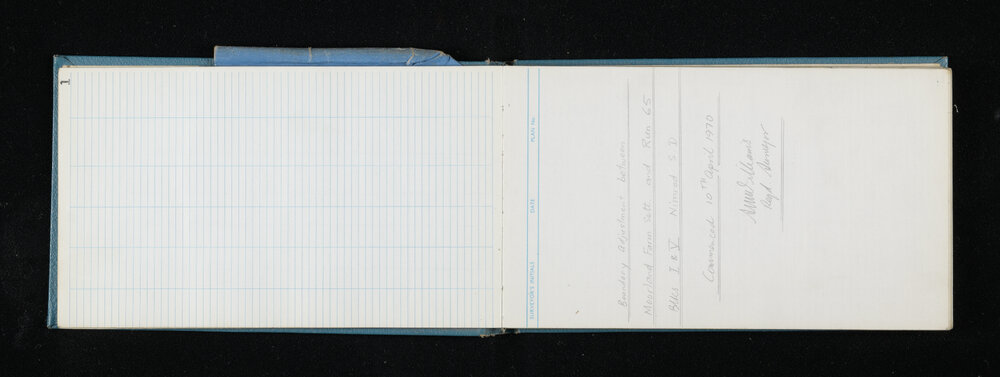 1
SURVEYOR'S INITIALS DATE PLAN No.
Boundary Adjustment between
Moorland Farm Sett. and Run 65
Blks I & V Nimrod S D
Commenced 10TH April 1970
Regd. Surveyor